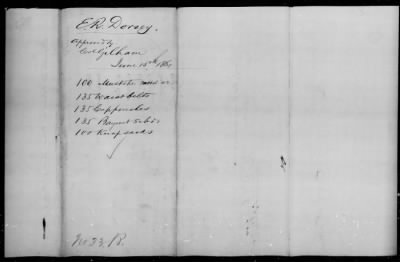 E. R. Dorsey.
Approved by
Col Gilham
June 15th 1861
100 Muskets
135 Waist belts
135 Cap pouches
135 Bayonet Scbds
100 Knapsacks
No 33. B.